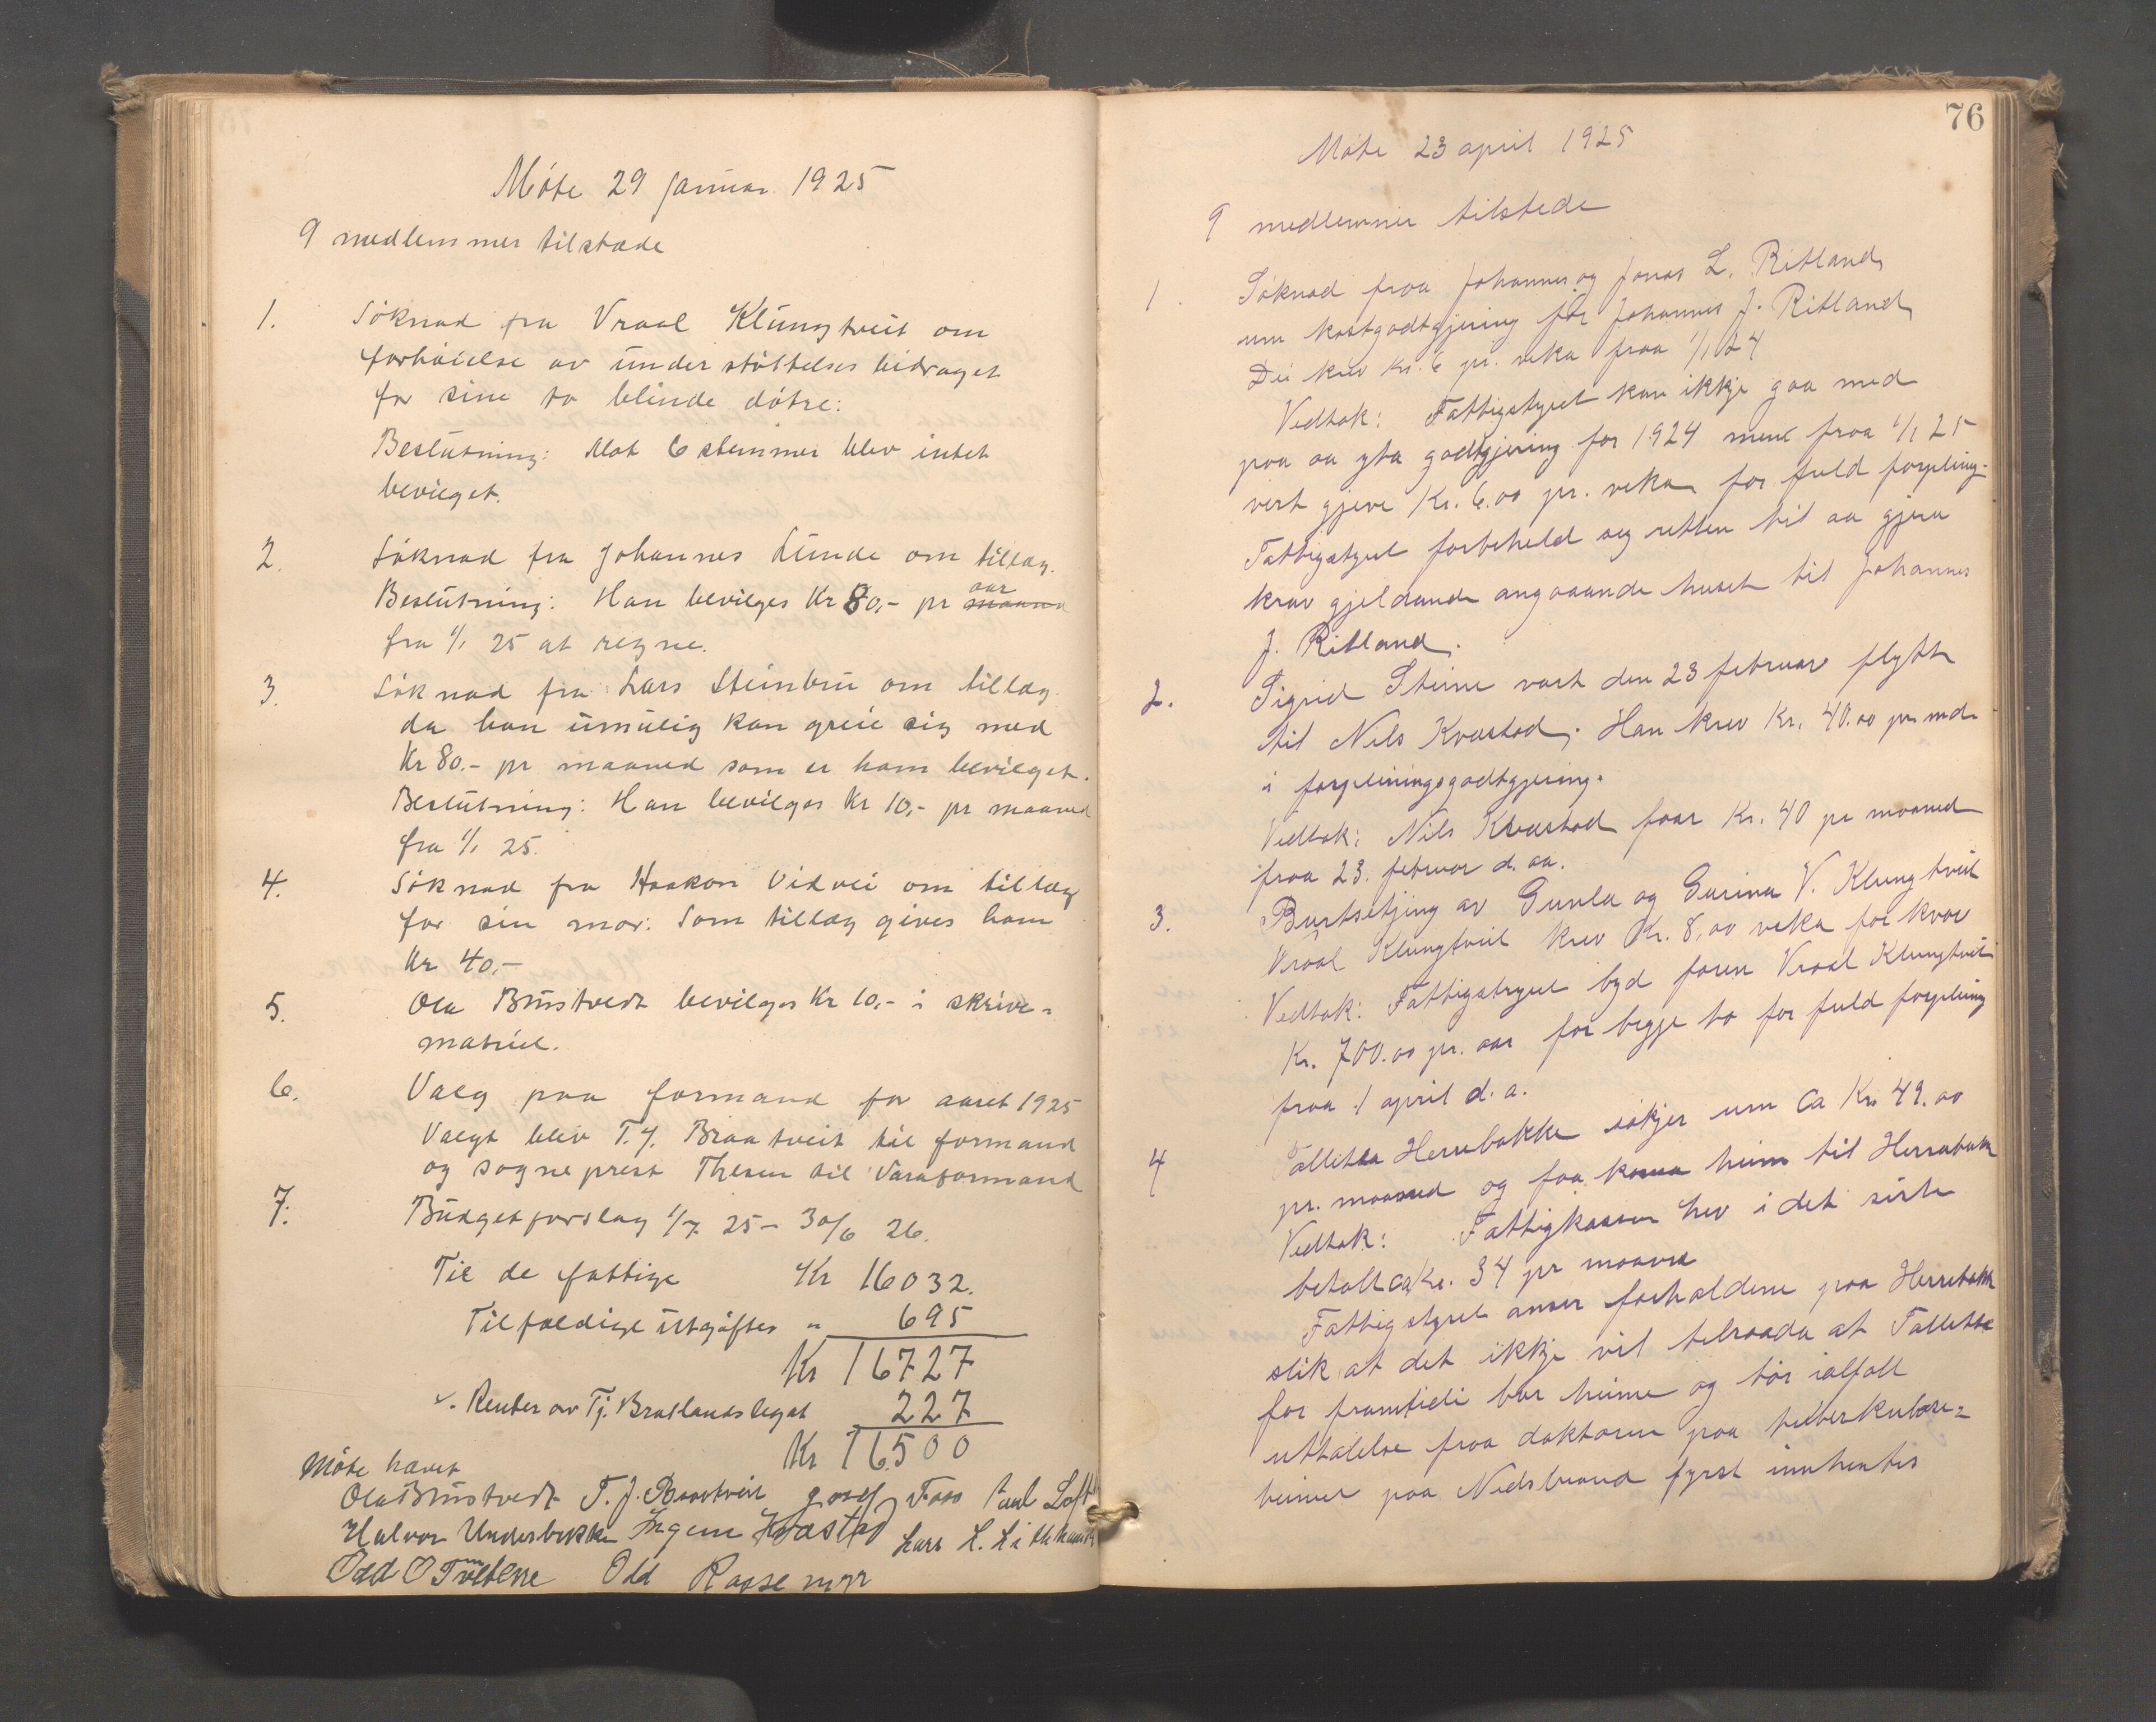 Møte 29 januar 1925
9 medlemmer tilstæde
1. Søknad fra Vraal Klungtveit om
forhøielse av understøttelses bidraget
for sine to blinde døtre:
Beslutning: Mot 6 stemmer blev intet
bevilget.
2. Søknad fra Johannes Lunde om tillæg.
Beslutning: Han bevilges Kr 80,- pr maaned aar
fra 1/1 25 at regne.
3. Søknad fra Lars Steinbru om tillæg
da han umulig kan greie sig med
Kr 80.- pr maaned som er ham bevilget.
Beslutning: Han bevilges Kr 10,- pr maaned
fra 1/1 25.
4. Søknad fra Haakon Vidvei om tillæg
for sin mor: Som tillæg gives ham
Kr 40,-
5. Ola Bustvedt bevilges Kr 10,- i skrive=
matriel.
6. Valg paa formand for aaret 1925
Valgt blev T. J. Braatveit til formand
og sogneprest Thesen til Varaformand
7. Budgetforslag 1/7 25 - 30/6 26.
Til de fattige Kr 16032.
Tilfældige utgifter " 695
Kr 16727
÷. Renter av Tj. Bratlandslegat 227
Kr 16500
Møte hævet
Ola Bustvedt T. J. Braatveit Josef Foss Paul Loft
Halvor Underbakke Ingem Kvæstad Lars L.
Odd O Tveitene Odd
76
Møte 23 april 1925
9 medlemmer tilstede
1. Søknad fraa Johannes og Jonas L. Ritland
um kostgodtgjering for Johannes J. Ritland
Dei krev kr. 6 pr. veka fraa 1/1 24
Vedtak: Fattigstyret kan ikkje gaa med
paa aa yta godtgjering for 1924 menx fraa 1/1 25
vert gjeve Kr. 6.00 pr. veka for fuld forpleiing.
Fattigstyret forbeheld seg retten til aa gjera
krav gjeldande angaaande huset til Johannes
J. Ritland.
2. Sigrid Steine vart den 23 februar flytt
til Nils Kvæstad. Han krev Kr. 40.00 pr. md.
i forpleiningsgodtgjering.
Vedtak: Nils Kvæstad faar Kr. 40 pr maaned
fraa 23. februar d. aa.
3. Burtsetjing av Gunla og Gurina V. Klungtveit
Vraal Klungtveit krev Kr. 8,00 veka for kvar
Vedtak: Fattigstyret byd faren Vraal Klungtveit
Kr. 700.00 pr. aar for begge to for fuld forpleiing
fraa 1 april d. a.
4 Tallitta Herrebakke søkjer um ca Kr. 49.00
pr. maaned og faa koma heim til Herrebakk
Vedtak: Fattigkassen hev i det siste
betalt ca Kr. 34 pr maaned
Fattigstyret anser forholdene paa Herrebakk
slik at det ikkje vil tilraada at Tallitta
for framtidi bur heime og bør ialfall
uttalelse fraa doktoren paa tuberkulose=
heimen paa Nedstrand fyrst innhentes